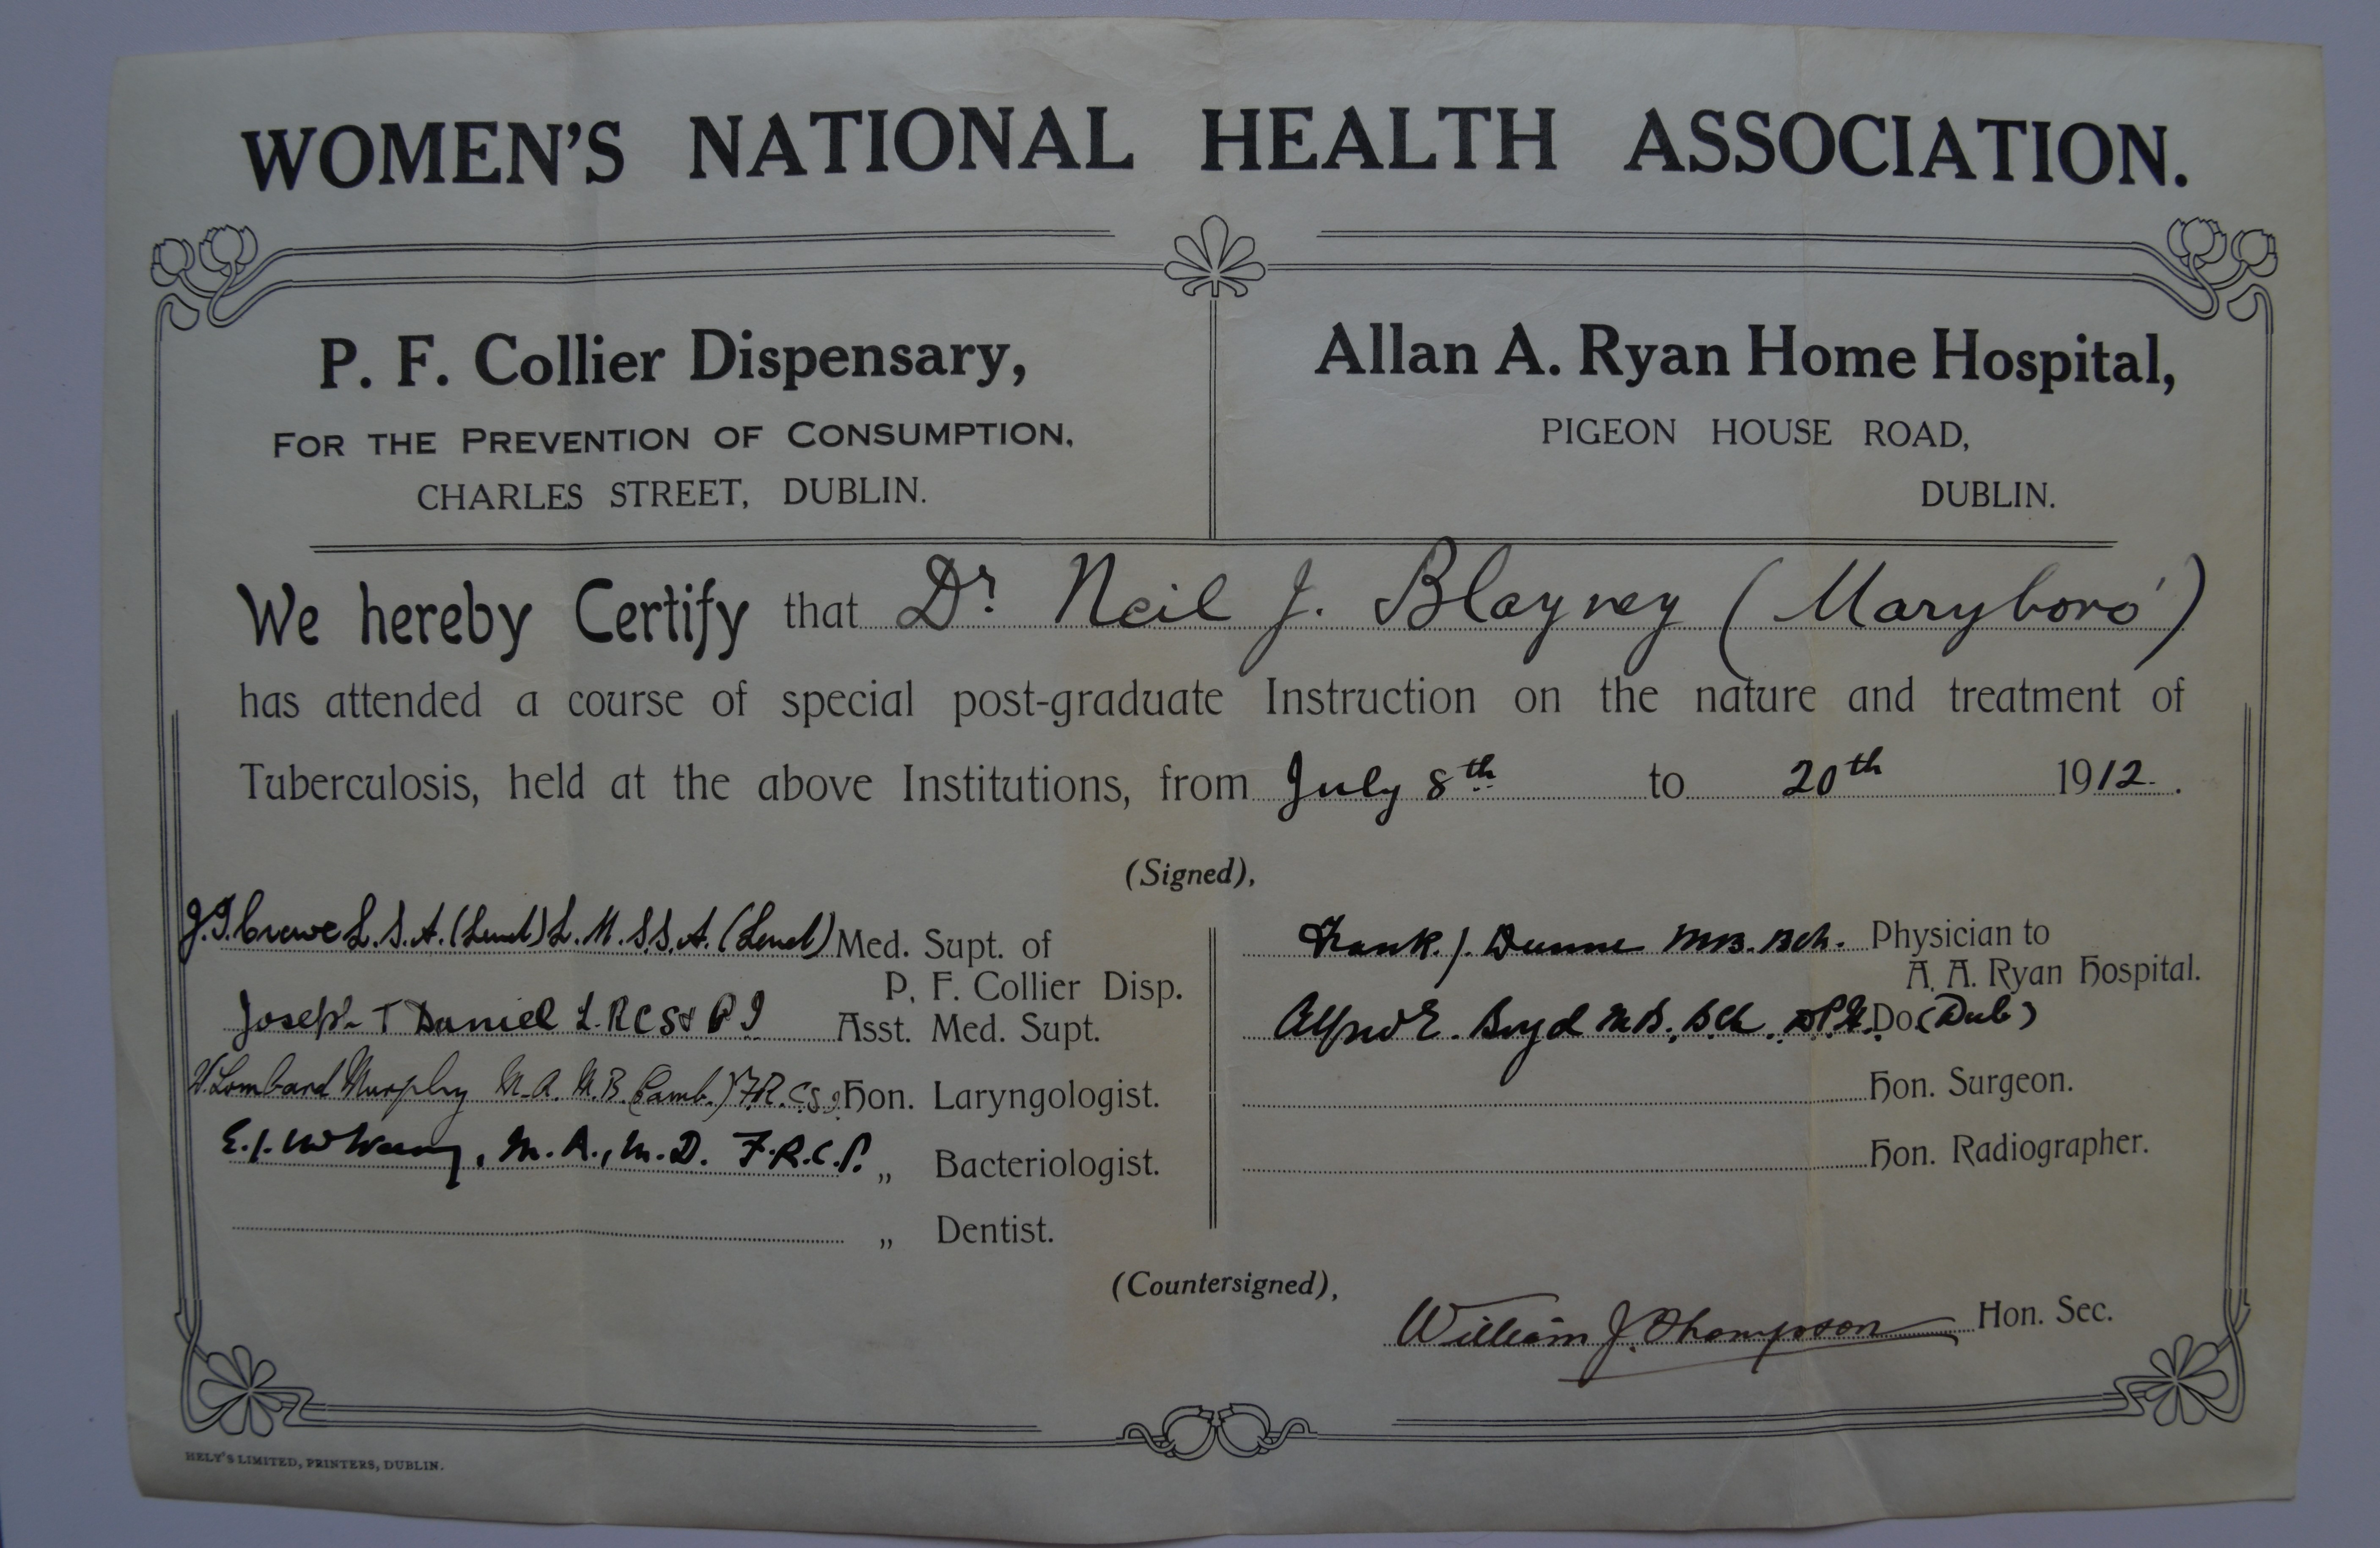 WOMEN'S NATIONAL HEALTH ASSOCIATION.
P. F. Collier Dispensary,
FOR THE PREVENTION OF CONSUMPTION,
CHARLES STREET, DUBLIN.
Allan A. Ryan Home Hospital,
PIGEON HOUSE ROAD,
DUBLIN.
We hereby Certify that Dr Neil J. Blayney (Maryboro')
has attended a course of special post-graduate Instruction on the nature and treatment of
Tuberculosis, held at the above Institutions, from July 8th to 20th 1912.
(Signed),
J.T. Crowe L.S.A. (Lond) L.M.S.S.A. (Lond) Med. Supt. of
P. F. Collier Disp.
Joseph T Daniel L.R C S & P I Asst. Med. Supt.
W. Lombard Murphy M.A. M.B. (Camb.) F.R.C.S.I. Hon. Laryngologist.
E.J. M.A., M.D. F.R.C.P. „ Bacteriologist.
„ Dentist.
Frank J. Dunne M.B. Bch. Physician to
A. A. Ryan Hospital.
Alfred E. Boyd M.B. B.Ch. D.P.H. Do. (Dub)
Hon. Surgeon.
Hon. Radiographer.
(Countersigned),
William J. Thompson Hon. Sec.
HELY'S LIMITED, PRINTERS, DUBLIN.